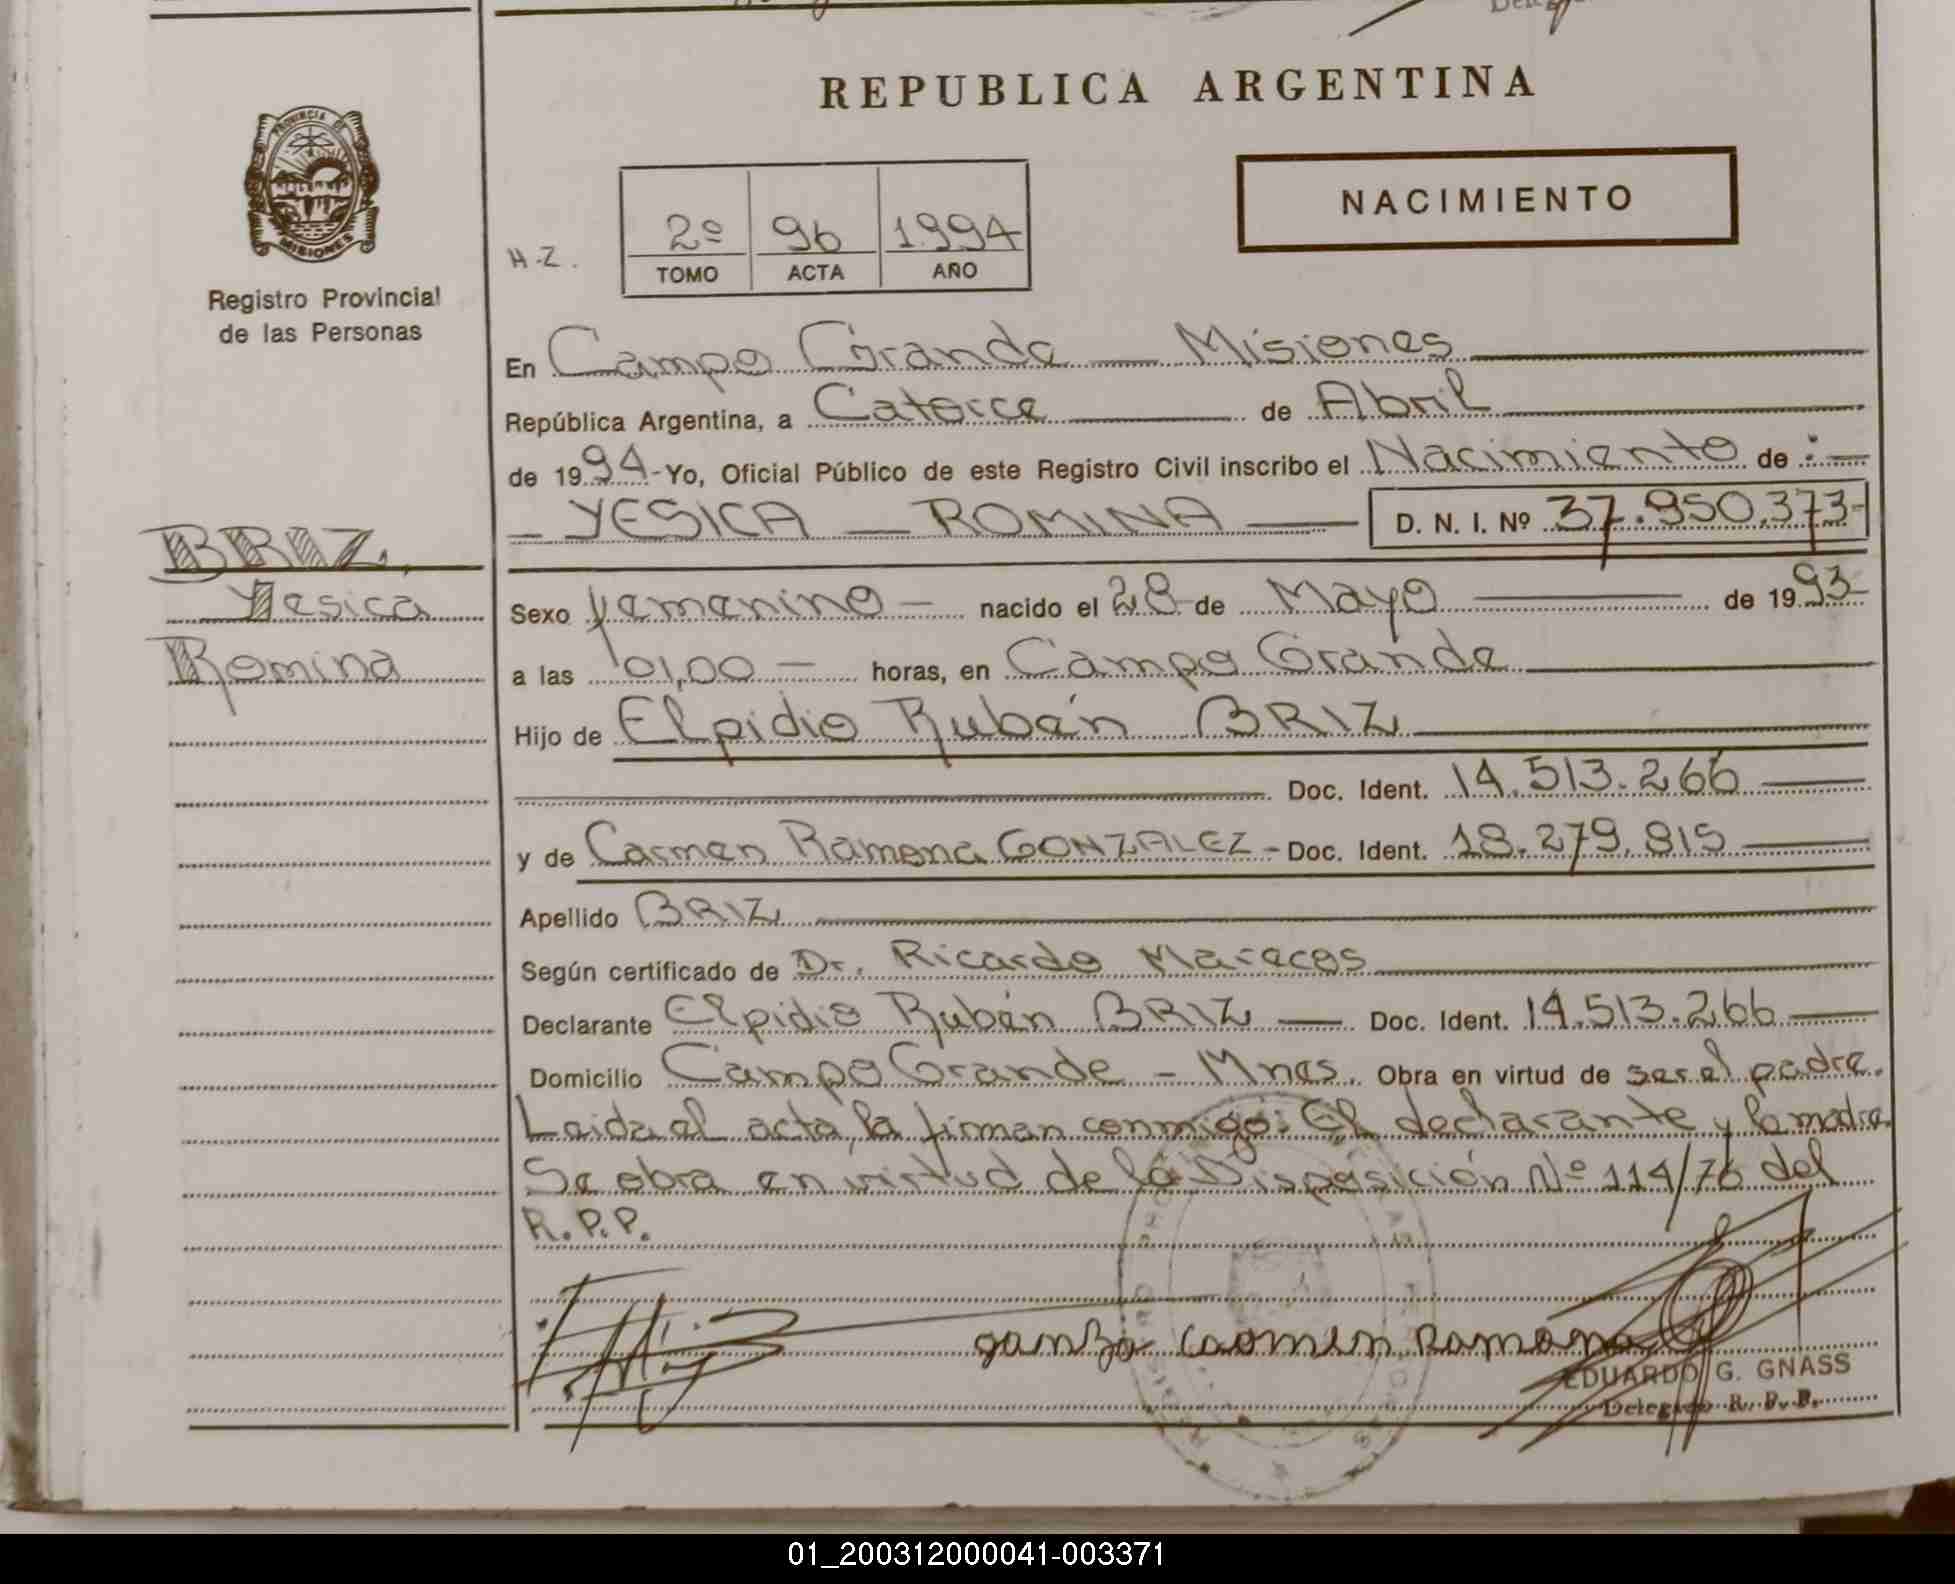 REPUBLICA ARGENTINA
PROVINCIA DE
MISIONES
Registro Provincial
de las Personas
NACIMIENTO
H-Z.
2º 96 1994
TOMO ACTA AÑO
En Campo Grande — Misiones
República Argentina, a Catorce de Abril
de 1994 - Yo, Oficial Público de este Registro Civil inscribo el Nacimiento de :—
— YESICA — ROMINA — D. N. I. Nº 37.950.373-
BRIZ,
Yesica
Romina
Sexo femenino — nacido el 28 de Mayo — de 1993-
a las 01,00 — horas, en Campo Grande
Hijo de Elpidio Rubén BRIZ
Doc. Ident. 14.513.266 —
y de Carmen Ramona GONZALEZ - Doc. Ident. 18.279.815 —
Apellido BRIZ
Según certificado de Dr. Ricardo Maracos
Declarante Elpidio Rubén BRIZ — Doc. Ident. 14.513.266 —
Domicilio Campo Grande - Mnes. Obra en virtud de ser el padre.
Leida el acta, la firman conmigo: El declarante y la madre.
Se obra en virtud de la Disposición Nº 114/76 del
R.P.P.
Carmen Ramona
EDUARDO G. GNASS
Delegado R. P. P.
01_200312000041-003371